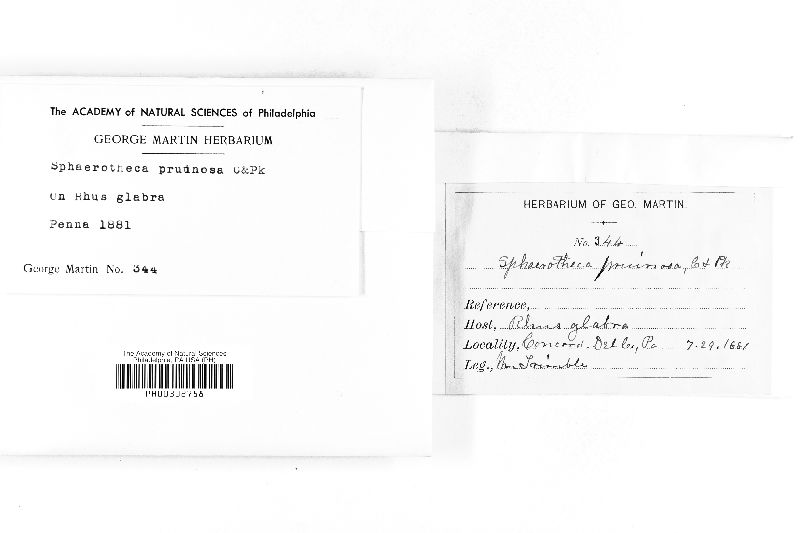 The ACADEMY of NATURAL SCIENCES of Philadelphia
GEORGE MARTIN HERBARIUM
Sphaerotheca pruinosa C&Pk
On Rhus glabra
Penna 1881
George Martin No. 344
The Academy of Natural Sciences
Philadelphia, PA USA (PH)
HERBARIUM OF GEO. MARTIN.
No. 344
Sphaerotheca pruinosa, C & Pk
Reference,
Host, Rhus glabra
Locality, Concord. Del Co., Pa 7.29.1881
Leg., Trimble